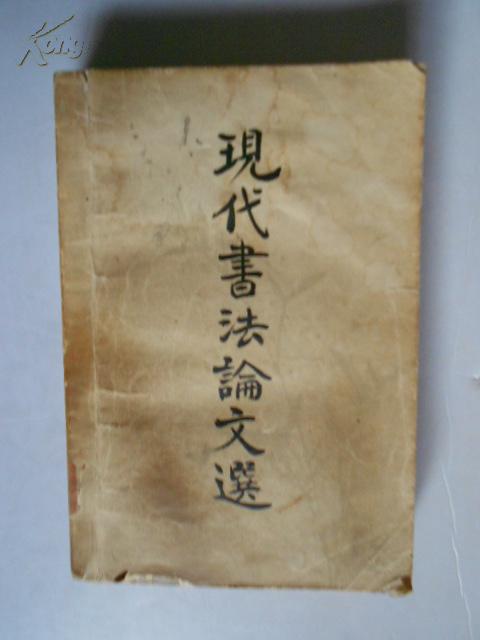 現代書法論文選
Kongf